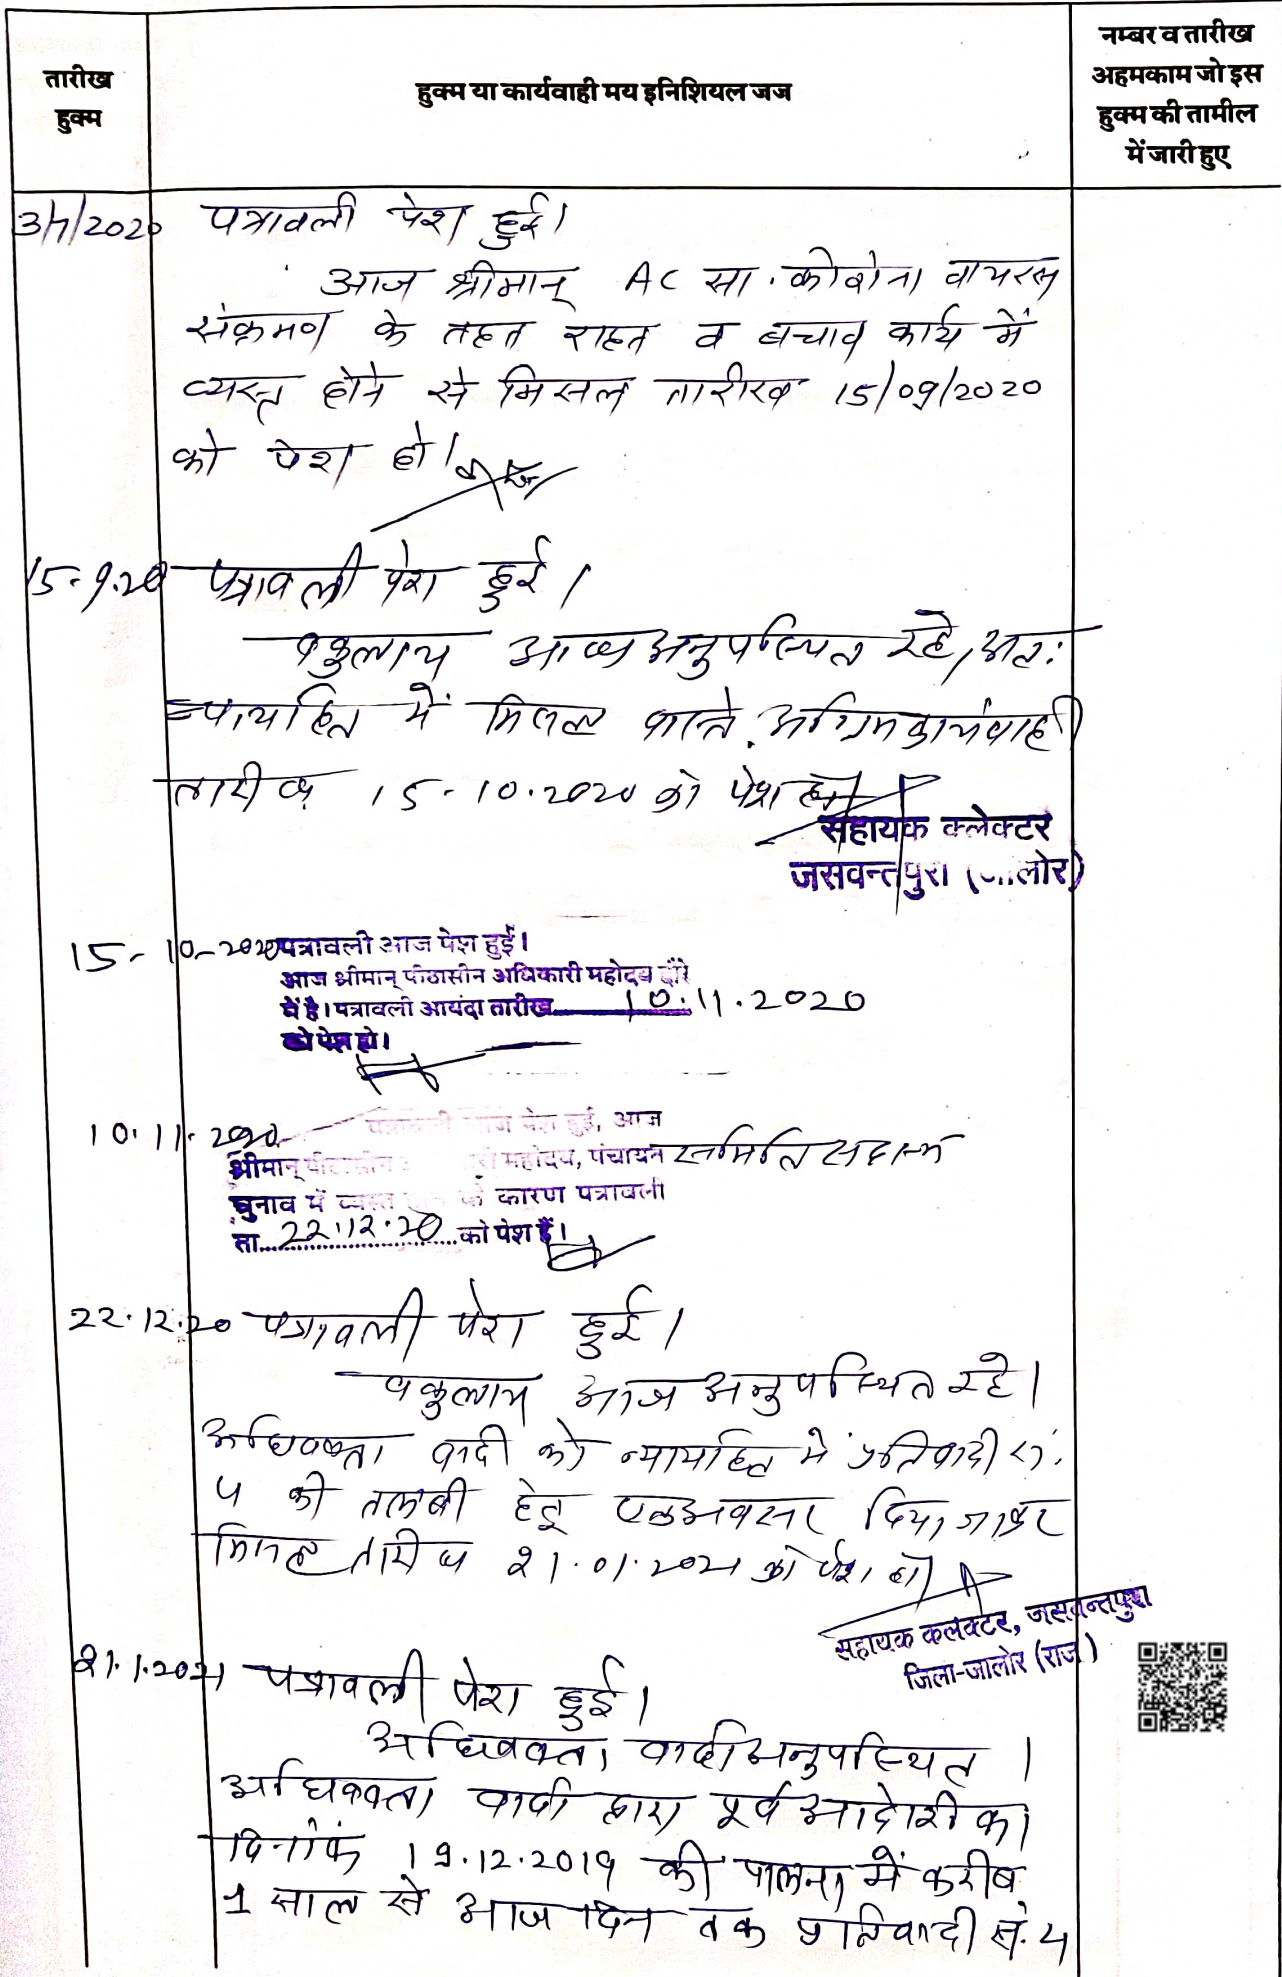 तारीख
हुक्म
हुक्म या कार्यवाही मय इनिशियल जज
नम्बर व तारीख
अहमकाम जो इस
हुक्म की तामील
में जारी हुए
3/7/2020 पत्रावली पेश हुई।
आज श्रीमान् AC सा. कोरोना वायरस
संक्रमण के तहत राहत व बचाव कार्य में
व्यस्त होने से मिसल तारीख 15/09/2020
को पेश हो।
15-9-20 पत्रावली पेश हुई।
वकुलाय आज अनुपस्थित रहे, अतः
न्यायहित में मिसल वास्ते अग्रिम कार्यवाही
तारीख 15-10-2020 को पेश हो।
सहायक क्लेक्टर
जसवन्तपुरा (जालोर)
15-10-2020 पत्रावली आज पेश हुई।
आज श्रीमान् पीठासीन अधिकारी महोदय दौरे
में है। पत्रावली आयंदा तारीख 10.11.2020
को पेश हो।
10.11.2020 पत्रावली आज पेश हुई, आज
श्रीमान् पीठासीन महोदय, पंचायत समिति सदस्य
चुनाव में व्यस्त के कारण पत्रावली
ता. 22.12.20 को पेश हैं।
22.12.20 पत्रावली पेश हुई।
वकुलाय आज अनुपस्थित रहे।
अधिवक्ता वादी को न्यायहित में प्रतिवादी सं.
4 की तलबी हेतु एक अवसर दिया जाकर
मिसल तारीख 21.01.2021 को पेश हो।
सहायक कलक्टर, जसवन्तपुरा
जिला-जालोर (राज)
21.1.2021 पत्रावली पेश हुई।
अधिवक्ता वादी अनुपस्थित।
अधिवक्ता वादी द्वारा पूर्व आदेशिका
दिनांक 19.12.2019 की पालना में करीब
1 साल से आज दिन तक प्रतिवादी सं. 4